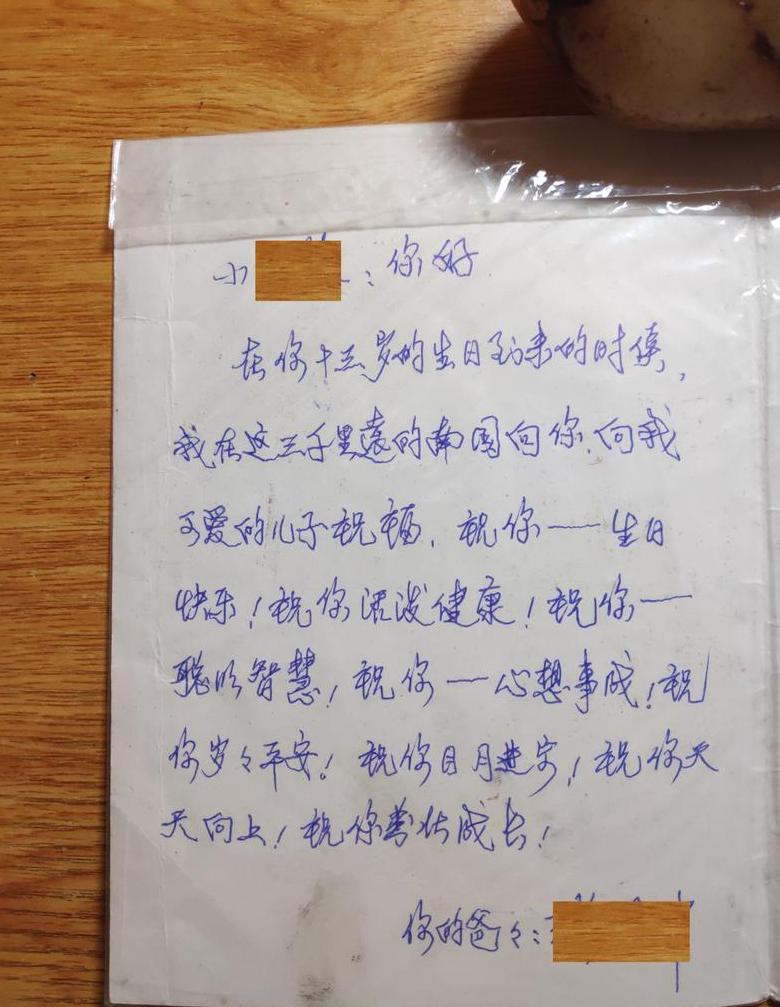 小：你好
在你十三岁的生日到来的时候，
我在这三千里遠的南国向你.向我
可爱的儿子祝福，祝你——生日
快乐！祝你活泼健康！祝你——
聪明智慧！祝你——心想事成！祝
你岁々平安！祝你日月进步！祝你天
天向上！祝你茁壮成长！
你的爸々：